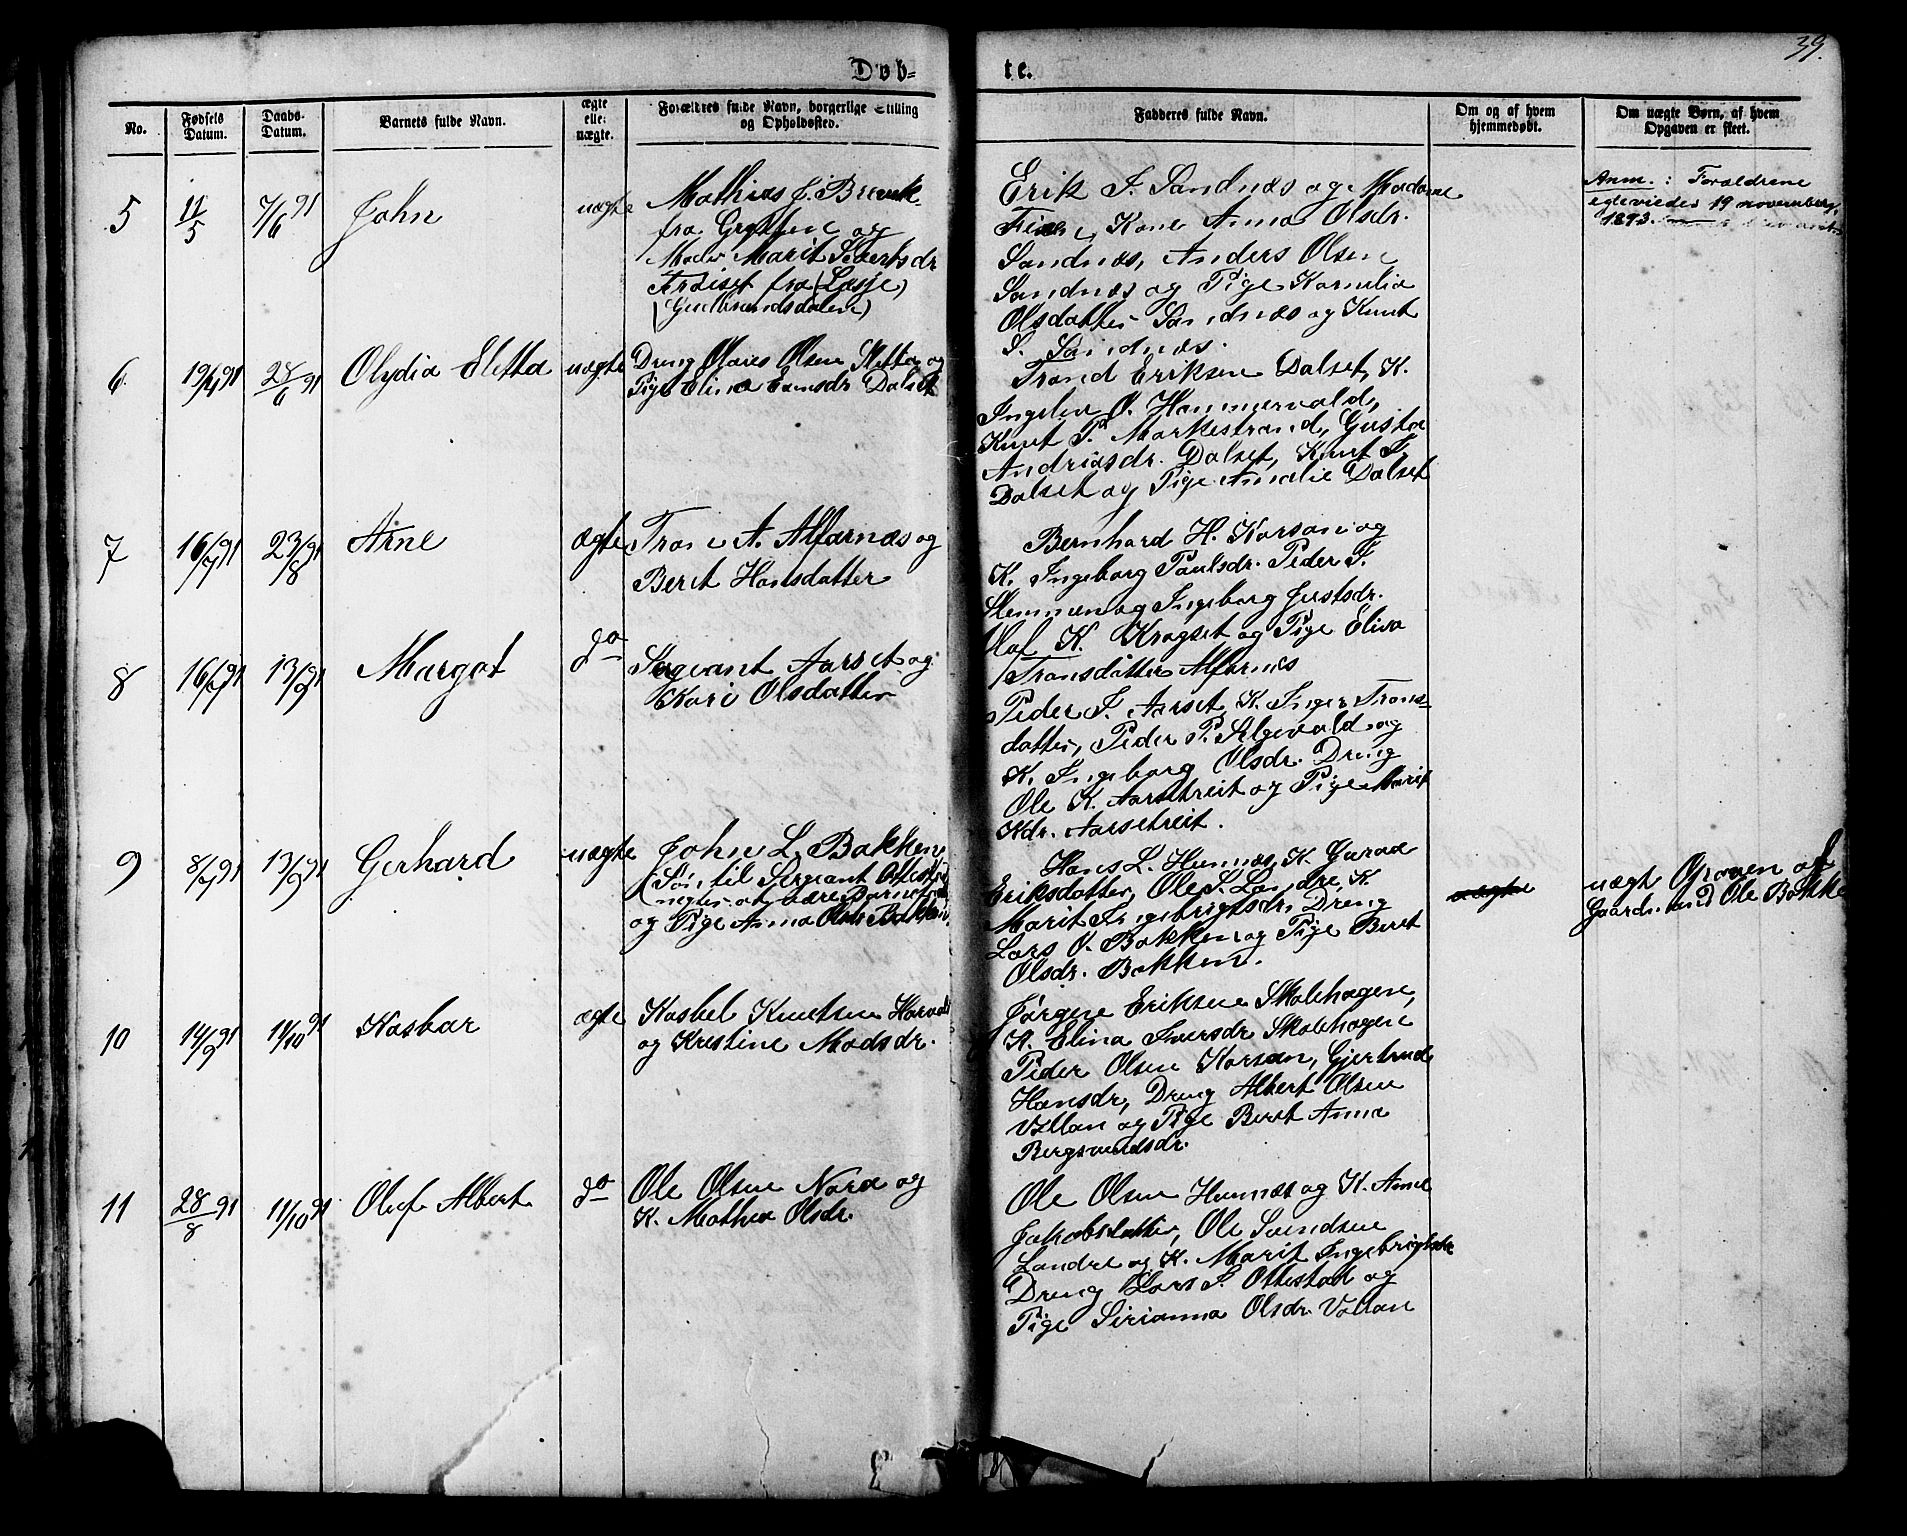 39.
Døb-
te.
No.
Fødsels Datum.
Daabs-Datum.
Barnets fulde Navn.
ægte eller uægte.
Forældres fulde Navn, borgerlige Stilling og Opholdssted.
Fadderes fulde Navn.
Om og af hvem hjemmedøbt.
Om uægte Børn, af hvem Opgaven er skeet.
5
11/5
7/6 91
John
uægte
Mathias J. Brevik
fra Grytten og
Moder Marit Sivertsdr
fra (Lesje)
(Gudbrandsdalen)
Erik J. Sandnæs og Madame
Kone Anna Olsdr.
Sandnæs, Anders Olsen
Sandnæs og Pige Kornelia
Olsdatter Sandnæs og Knut
S. Sandnæs.
Anm.: Forældrene
egteviedes 19 november
1893.
6
19/4 91
28/6 91
Olydia Eletta
uægte
Dreng Olaus Olsen Sletta og
Pige Elina Dalset
Trond Eriksen Dalset, K.
O. Hammervold,
Knut P. Markestrand, Gusta
Andriasdr. Dalset, Knut T.
Dalset og Pige Amalie Dalset
7
16/7 91
23/8 91
Arne
ægte
Tron A. Alfarnæs og
Berit Hansdatter
Bernhard H. Korsan og
K. Ingeborg Paulsdr. Peder T.
Slemmen og Ingeborg Justsdr.
Olaf K. Krogset og Pige Elisa
Transdatter Alfarnes
8
16/7 91
13/9 91
Margot
do
Sergeant Aarset og
Kari Olsdatter
Peder J. Aarset, K. Inger Trons-
datter, Peder P. Selgevold og
K. Ingeborg Olsdr. Dreng
Ole K. Aarsetreit og Pige Marit
Kdr. Aarsetreit.
9
8/7 91
13/9 91
Gerhard
uægte
John L. Bakken
(Søn til Sergeant
negter at være Barnefad
og Pige Anna Bakken
Hans L. Hunnæs, K. Guroa
Eriksdatter, Ole S. Landre, K.
Marit Ingebrigtsdr, Dreng
Lars O. Bakken og Pige Beret
Olsdr. Bakken.
uægte
uægt Opgaven af
Gaardmand Ole Bakke
10
14/9 91
11/10 91
Kasbar
ægte
Kasbel Knutsen
og Kristine Madsdr.
Jørgen Eriksen Skolehagen,
K. Elina Iversdr Skolehagen
Peder Olsen Korsan, Gjertrud
Hansdr, Dreng Albert Olsen
Vollan og Pige Beret Anna
Bergsvendsdr.
11
28/8 91
11/10 91
Oluf Albert
do
Ole Olsen Nora og
K. Mathea Olsdr.
Ole Olsen Hunnæs og K. Anne
Jakobsdatter, Ole Svendsen
Landre og K. Marit Ingebrigtsdr
Dreng Lars S. Ottestad og
Pige Sirianna Olsdr. Vollan